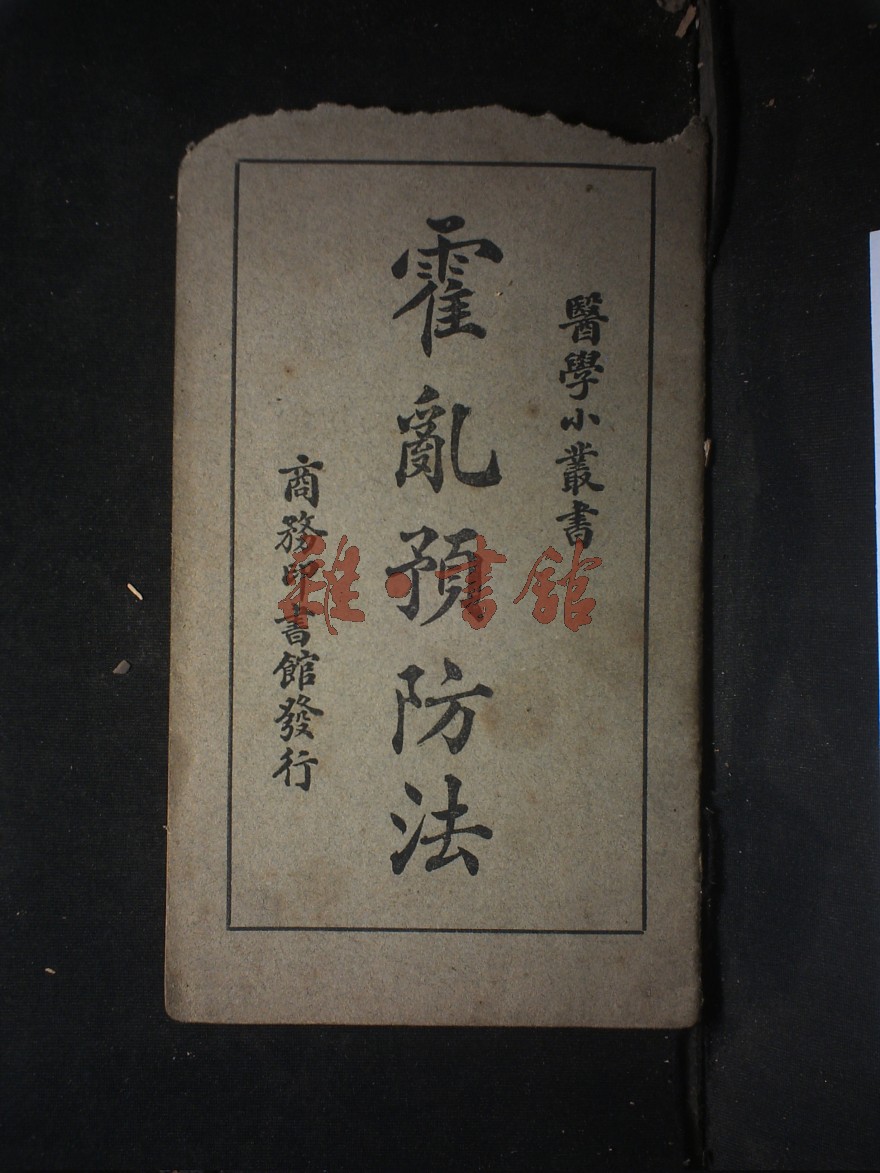 醫學小叢書
霍亂預防法
商務印書館發行
雜·書館